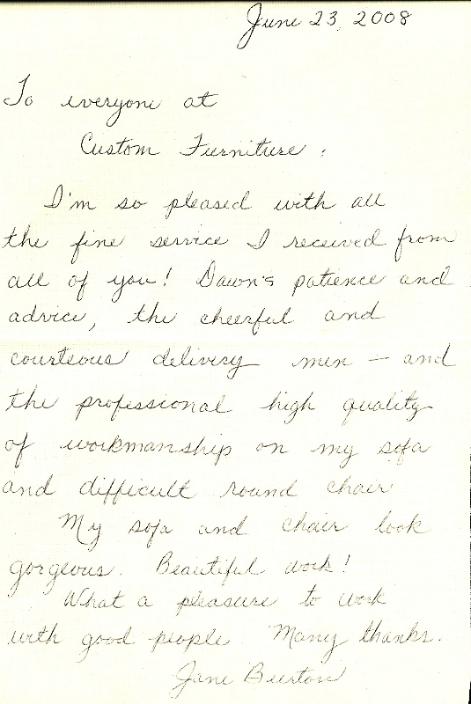 June 23, 2008
To everyone at
Custom Furniture:
I'm so pleased with all
the fine service I received from
all of you! Dawn's patience and
advice, the cheerful and
courteous delivery men – and
the professional high quality
of workmanship on my sofa
and difficult round chair
My sofa and chair look
gorgeous. Beautiful work!
What a pleasure to work
with good people. Many thanks.
Jane Burton